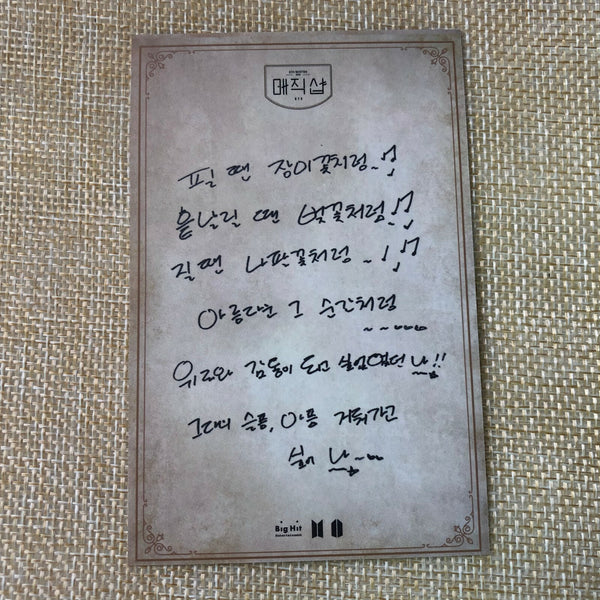 매직샵
BTS
필 땐 장미꽃처럼~♫
흩날릴 땐 벚꽃처럼♫
질 땐 나팔꽃처럼~♫
아름다운 그 순간처럼
~~
위로와 감동이 되고 싶었었던 나~!!
그대의 슬픔, 아픔 거둬가고
싶어 나~~
Big Hit
ENTERTAINMENT